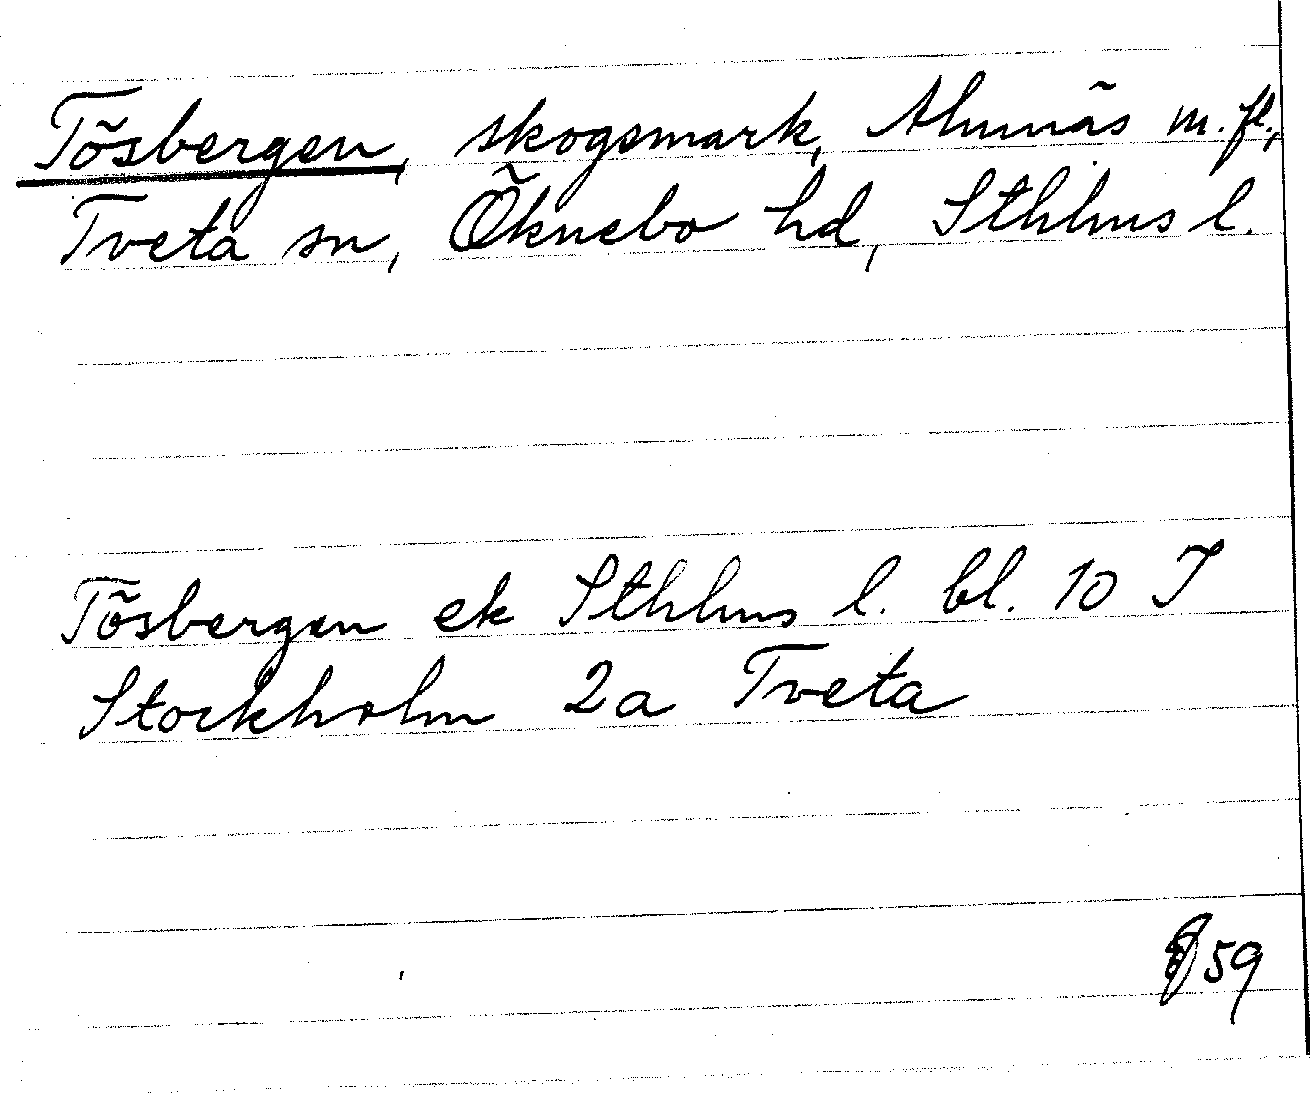 Tösbergen, skogsmark, Almnäs m. fl.,
Tveta sn, Öknebo hd, Sthlms l.
Tösbergen ek Sthlms l. bl. 10 I
Stockholm 2a Tveta
59